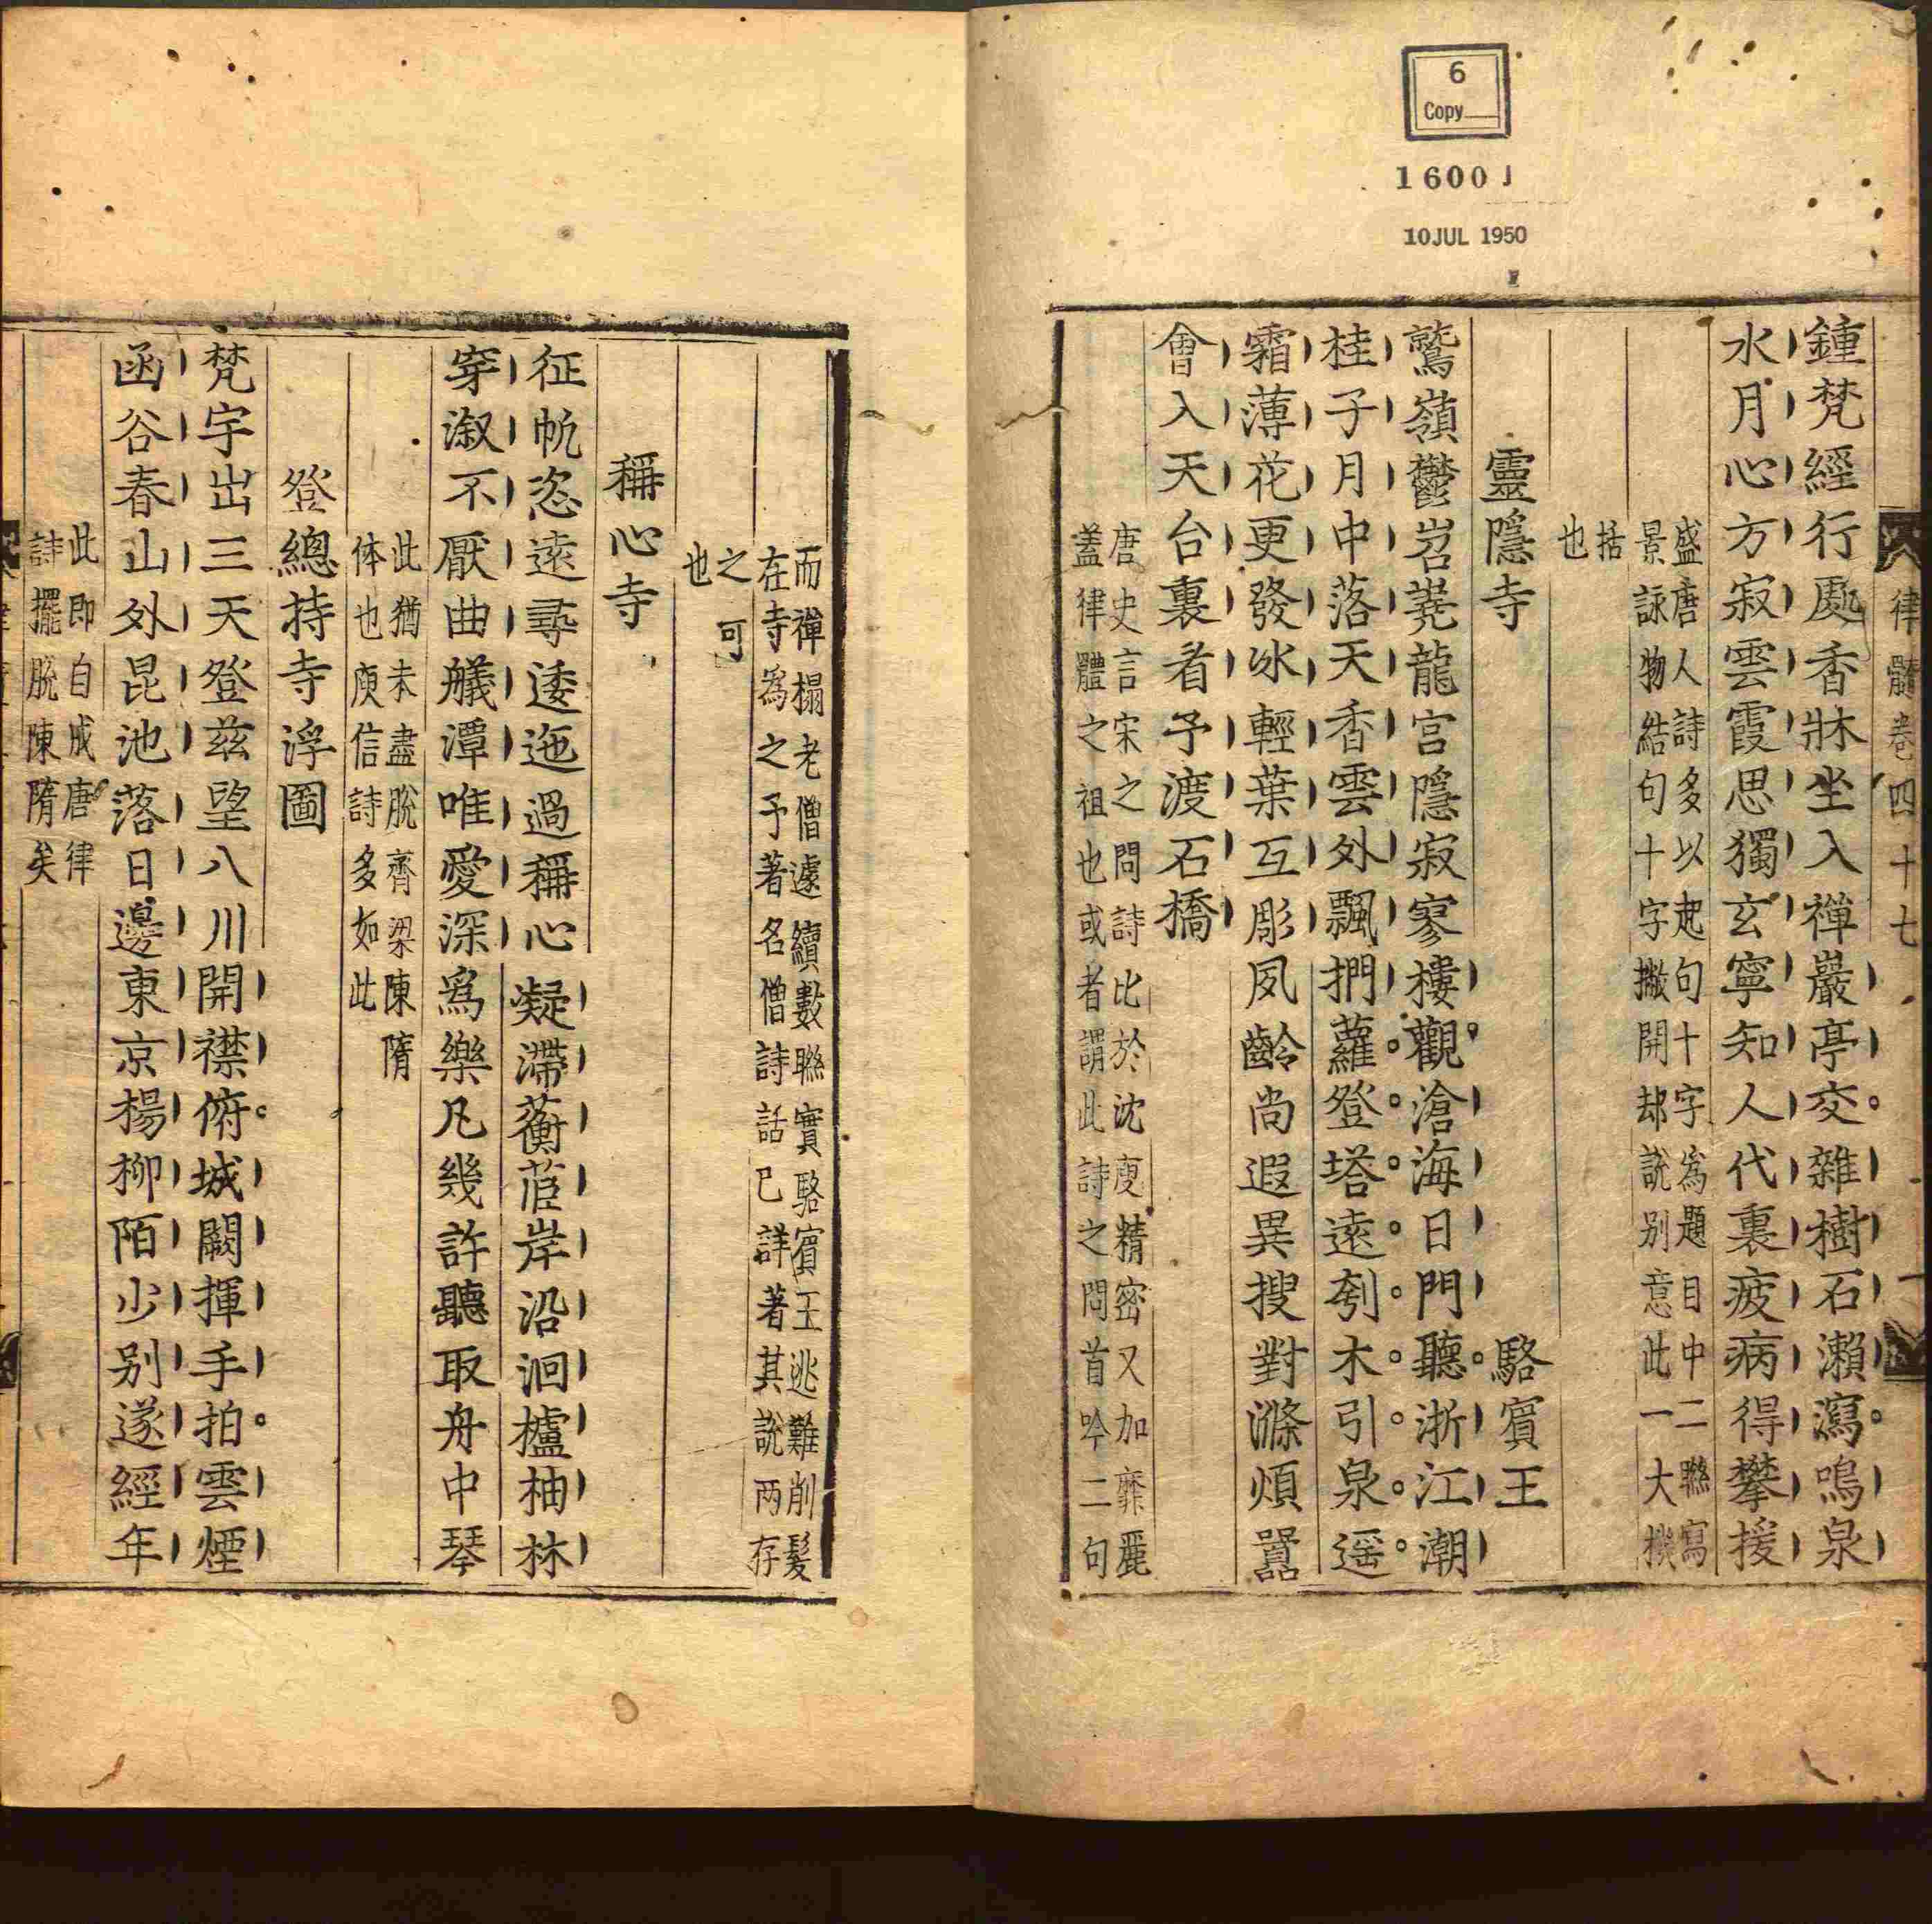 6
Copy
1600 J
10JUL 1950
律髓卷四十七
鍾梵經行處香牀坐入禪巖亭交雜樹石瀨瀉鳴泉
水月心方寂雲霞思獨玄寧知人代裏疲病得攀援
盛唐人詩多以起句十字爲題目中二聯寫
景詠物結句十字撇開却說别意此一大槩
括
也
靈隱寺 駱賓王
鷲嶺鬱岧嶤龍宫隱寂寥樓觀滄海日門聽浙江潮
桂子月中落天香雲外飄捫蘿登塔遠刳木引泉遥
霜薄花更發冰輕葉互彫夙齡尚遐異搜對滌煩囂
會入天台裏看予渡石橋
唐史言宋之問詩比於沈庾精密又加靡麗
蓋律體之祖也或者謂此詩之問首吟二句
而禪榻老僧遽續數聯實駱賓王逃難削髮
在寺爲之予著名僧詩話已詳著其說两存
之可
也
稱心寺
征帆恣遠尋逶迤過稱心凝滯蘅茝岸沿洄櫨柚林
穿溆不厭曲艤潭唯愛深爲樂凡幾許聽取舟中琴
此猶未盡脫齊梁陳隋
体也庾信詩多如此
登總持寺浮圖
梵宇出三天登兹望八川開襟俯城闕揮手拍雲煙
函谷春山外昆池落日邊東京楊柳陌少别遂經年
此即自成唐律
詩擺脫陳隋矣